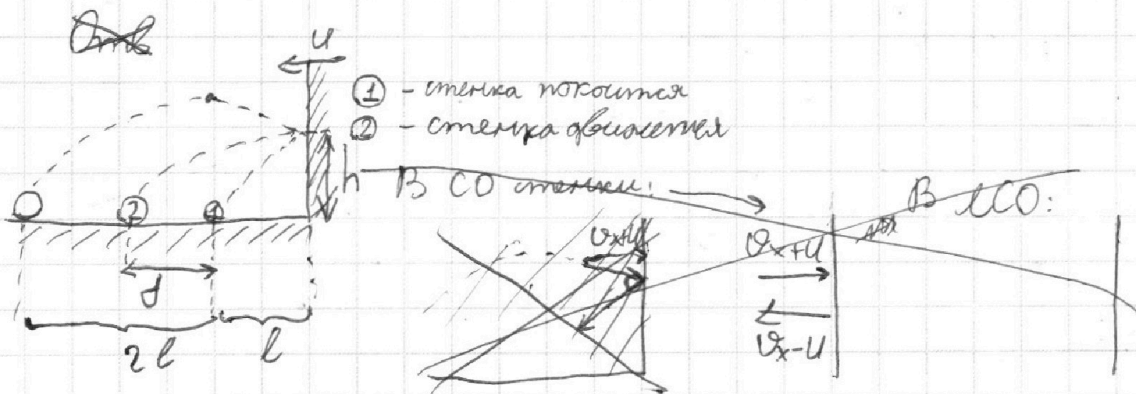 Отв
u
① - стенка покоится
② - стенка движется
h
В СО стенки:
В ЛСО:
Vx+u
Vx+u
Vx-u
② ①
d
2l
l